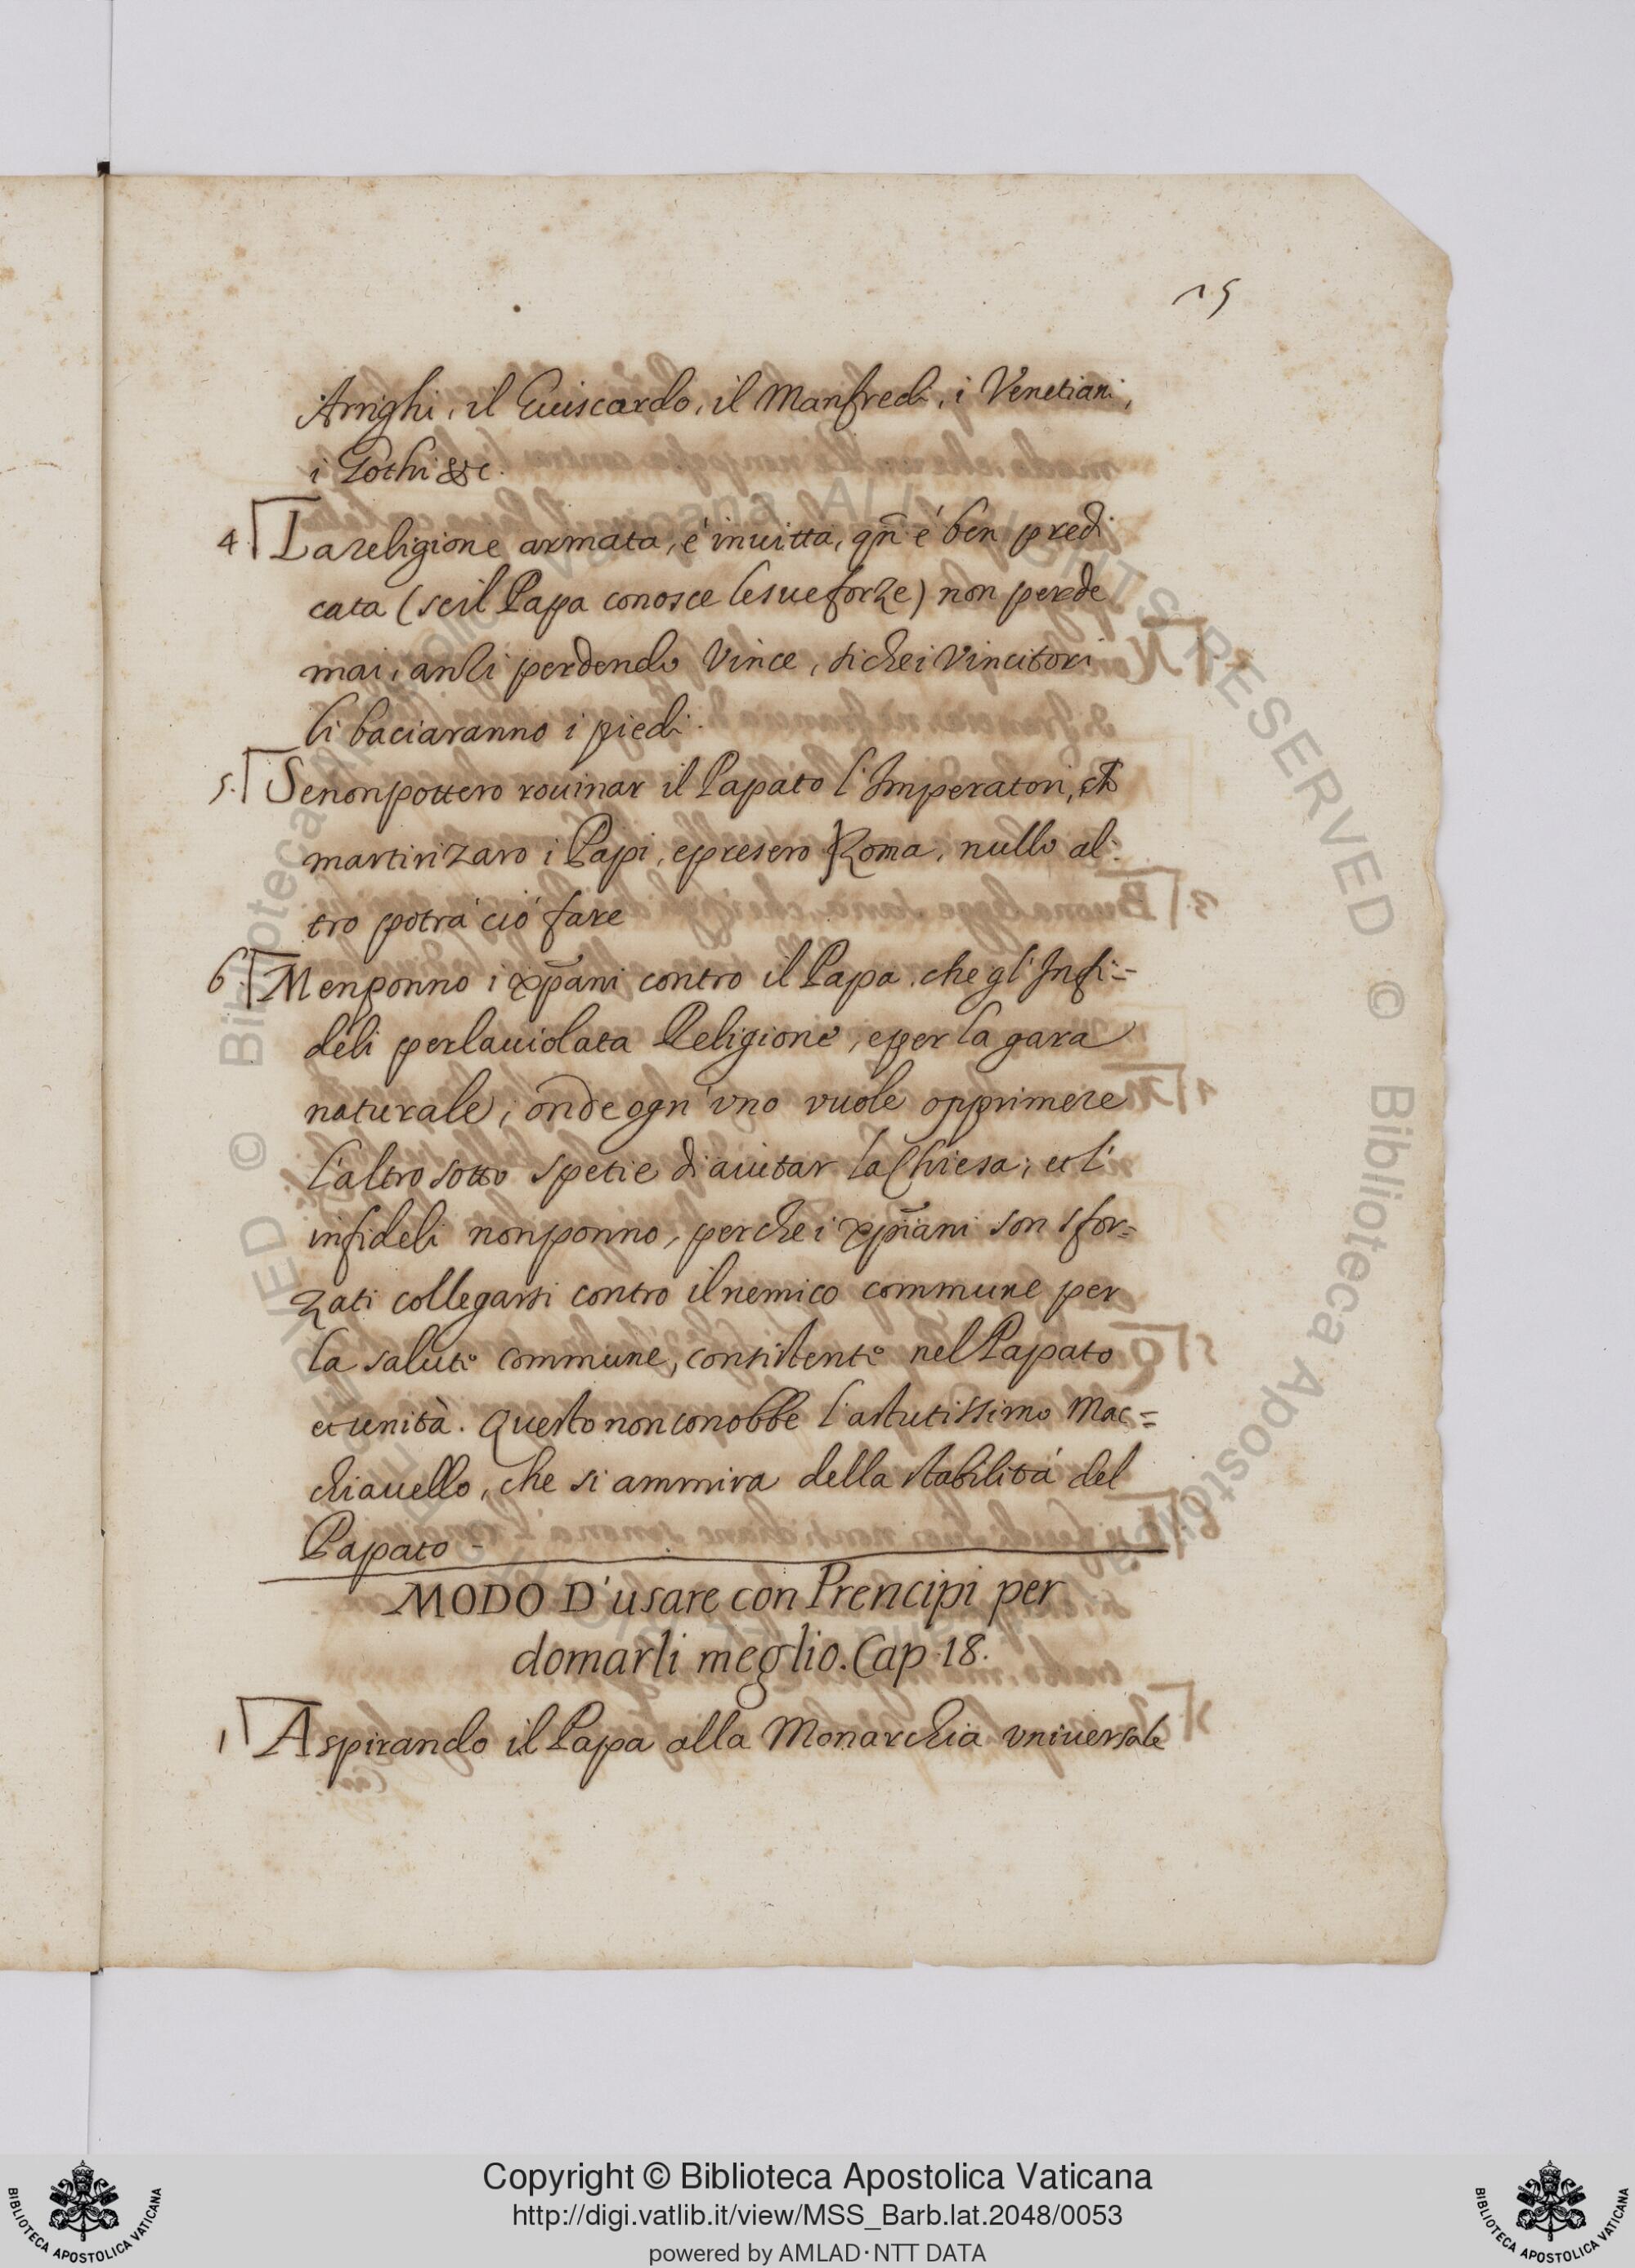 15
Arrighi, il Guiscardo, il Manfredi, i Venetiani,
i Gothi &c.
4. La religione armata, é inuitta, qñ é ben predi
cata (se il Papa conosce le sue forze) non perde
mai, anzi perdendo vince, si che i vincitori
li baciaranno i piedi.
5. Se non pottero rouinar il Papato l'Imperatori, ch
martirizaro i Papi, e presero Roma, nullo al:
tro potrá ció fare
6. Men ponno i xp̃ani contro il Papa, che gl'Infi:=
deli per la uiolata Religione, e per la gara
naturale, onde ogn'vno vuole opprimere
l'altro sotto spetie di aiutar la Chiesa; et l'
infideli non ponno, perche i xp̃iani son sfor=
zati collegarsi contro il nemico commune per
la salute commune, consistente nel Papato
et unità. Questo non conobbe l'astutissimo Mac=
chiauello, che si ammira della stabilitá del
Papato -
MODO D'usare con Prencipi per
domarli meglio. Cap. 18.
1 Aspirando il Papa alla Monarchia vniversale
Copyright © Biblioteca Apostolica Vaticana
http://digi.vatlib.it/view/MSS_Barb.lat.2048/0053
powered by AMLAD·NTT DATA
BIBLIOTECA APOSTOLICA VATICANA
BIBLIOTECA APOSTOLICA VATICANA